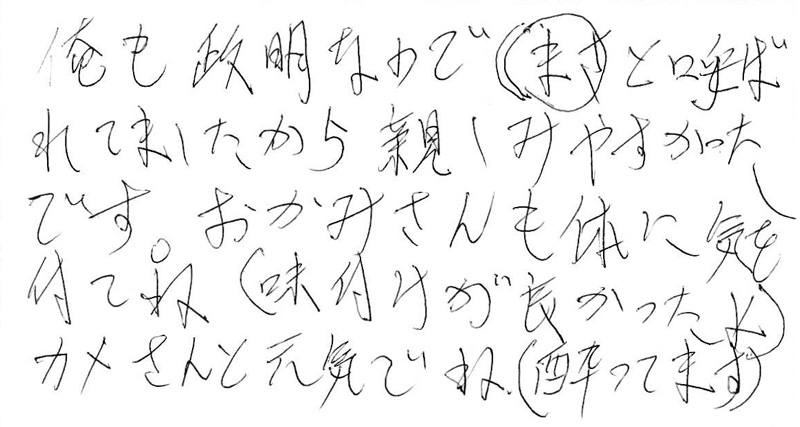 俺も政明なので(まさ)と呼ば
れてましたから親しみやすかった
です。おかみさんも体に気を
付てね(味付けが良かったよ)
カメさんと元気でね.(酔ってます)